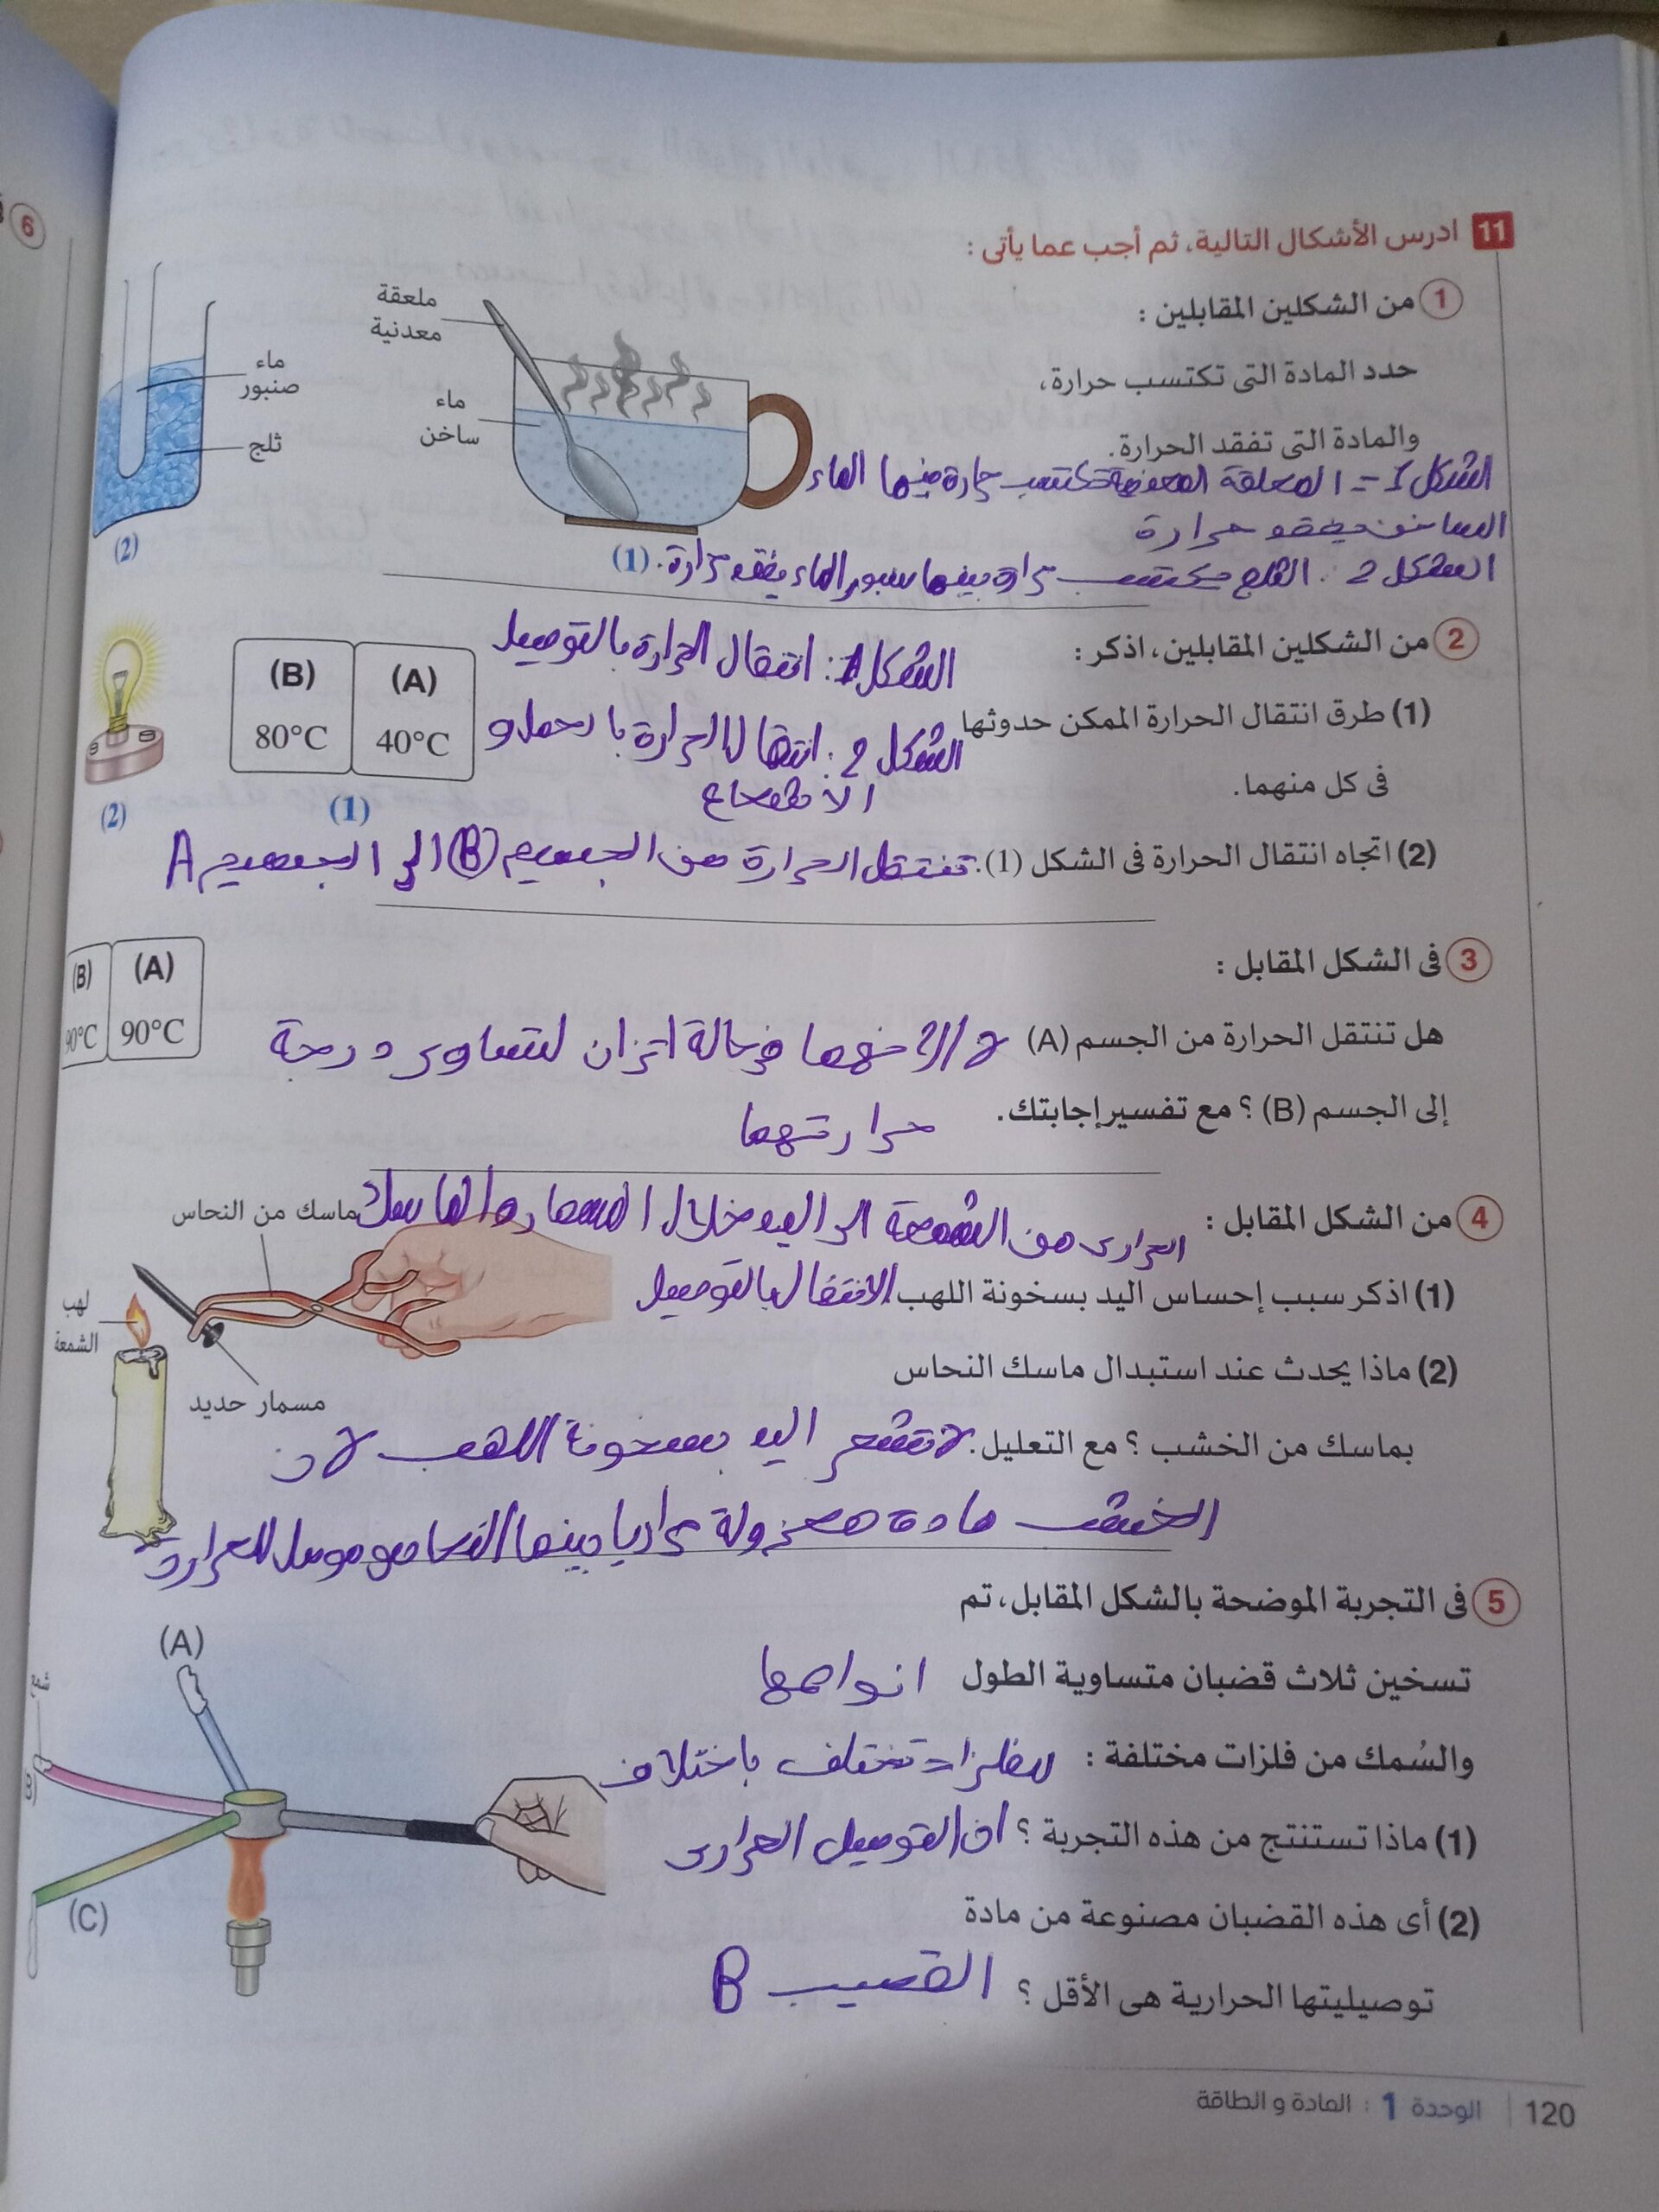 6
11 ادرس الأشكال التالية، ثم أجب عما يأتى :
1 من الشكلين المقابلين :
حدد المادة التى تكتسب حرارة،
والمادة التى تفقد الحرارة.
ملعقة
معدنية
ماء
ساخن
(1)
ماء
صنبور
ثلج
(2)
الشكل 1 = المعلقة المعدنية تكتسب حرارة بينما الماء
الساخن يفقد حرارة
الشكل 2 . الثلج يكتسب حرارة بينما سبور الماء يفقد حرارة.
2 من الشكلين المقابلين، اذكر :
(1) طرق انتقال الحرارة الممكن حدوثها
فى كل منهما.
الشكل 1: انتقال الحرارة بالتوصيل
الشكل 2 : انتقال الحرارة با لحمل و
الاشعاع
(B)
80°C
(A)
40°C
(1)
(2)
(2) اتجاه انتقال الحرارة فى الشكل (1). تنتقل الحرارة من الجسيم (B) الى الجسيم A
3 فى الشكل المقابل :
هل تنتقل الحرارة من الجسم (A) لا لانهما فى حالة اتزان لتساوى درجة
إلى الجسم (B) ؟ مع تفسير إجابتك. حرارتهما
(B)
90°C
(A)
90°C
4 من الشكل المقابل : الحرارى من الشمعة الى اليد خلال المسمار والماسك
(1) اذكر سبب إحساس اليد بسخونة اللهب. الانتقال بالتوصيل
(2) ماذا يحدث عند استبدال ماسك النحاس
بماسك من الخشب ؟ مع التعليل. لا تشعر اليد بسخونة اللهب لان
الخشب مادة معزولة حراريا بينما النحاس موصل للحرارة
ماسك من النحاس
لهب
الشمعة
مسمار حديد
5 فى التجربة الموضحة بالشكل المقابل، تم
تسخين ثلاث قضبان متساوية الطول انواعها
والسُمك من فلزات مختلفة : للفلزات تختلف باختلاف
(1) ماذا تستنتج من هذه التجربة ؟ ان التوصيل الحرارى
(2) أى هذه القضبان مصنوعة من مادة
توصيليتها الحرارية هى الأقل ؟ القضيب B
(A)
شمع
(B)
(C)
120 | الوحدة 1 : المادة و الطاقة